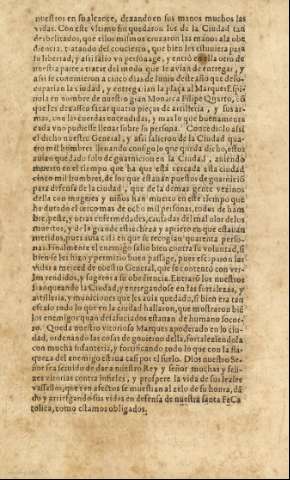 nuestros en su alcance, dexando en sus manos muchos las
vidas. Con este vltimo fin quedaron los de la Ciudad tan
desbelitados, que ellos mismos cruzaron las manos a la obe
diencia, tratando del concierto, que bien les estuuiera para
su libertad, y assi salio vn personage, y entrò en otro de
nuestra parte a tratar del modo que se auian de entregar, y
assi se conuinieron a cinco dias de Iunio deste año que deso-
cuparian la ciudad, y entregarian la plaça al Marques Espi-
nola en nombre de nuestro gran Monarca Felipe Quarto, cō
que les dexasse sacar quatro pieças de artilleria, y sus ar-
mas, con las cuerdas encendidas, y mas lo que buenamente
cada vno pudiesse lleuar sobre su persona. Concediolo assi
el dicho nuestro General, y assi salieron de la Ciudad qua-
tro mil hombres lleuando consigo lo que queda dicho, estos
auian quedado solo de guarnicion en la Ciudad, auiendo
muerto en el tiempo que ha que està cercada esta ciudad
cinco mil hombres, de los que estauan puestos de guarnicio
para defensa de la ciudad, que de la demas gente vezinos
della con mugeres y niños han muerto en este tiempo que
ha durado el sitio mas de ocho mil personas, todas de ham
bre, peste, y otras enfermedades, causadas del mal olor de los
muertos, y de la grande estrecheza y aprieto en que estauan
metidos, pues auia casa en que se recogian quarenta perso-
nas. Finalmente el enemigo salio bien contra su voluntad, si
bien se les hizo y permitio buen passage, pues escaparon las
vidas a merced de nuestro General, que se contentò con ver-
los rendidos, y sugetos a su obediencia. Entrarō los nuestros
franqueando la Ciudad, y entregandose en las fortalezas, y
artilleria, y municiones que les auia quedado, si bien era tan
escaso todo lo que en la ciudad hallaron, que mostraron biē
los enemigos quan desafuziados estauan de humano socor-
ro. Queda nuestro vitorioso Marques apoderado en la ciu-
dad, ordenando las cosas de gouierno della, fortaleciendola
con mucha infanteria, y fortificando todo lo que con la fla-
queza del enemigo estaua casi por el suelo. Dios nuestro Se-
ñor sea seruido de dar a nuestro Rey y señor muchas y feli-
zes vitorias contra infieles, y prospere la vida de sus leales
vassallos, que con afectos se muestran al zelo de su honra, dā
do y arriesgando sus vidas en defensa de nuestra santa Fè Ca
tolica, como estamos obligados.